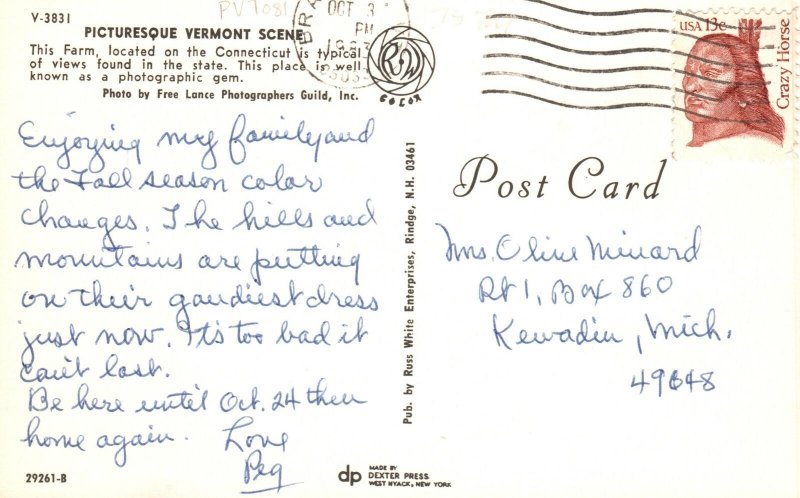 V-3831
PV7081
PICTURESQUE VERMONT SCENE
This Farm, located on the Connecticut is typical
of views found in the state. This place is well
known as a photographic gem.
Photo by Free Lance Photographers Guild, Inc.
OCT 3
PM
COLOR
USA 13c
Crazy Horse
Enjoying my family and
the Fall season color
changes. The hills and
mountains are putting
on their gaudiest dress
just now. It's too bad it
can't last.
Be here until Oct. 24 then
home again. Love
Peg
Pub. by Russ White Enterprises, Rindge, N.H. 03461
Post Card
Mrs. Oline Minard
Rt 1, Box 860
Kewadin, Mich.
49648
29261-B
dp
MADE BY
DEXTER PRESS
WEST NYACK, NEW YORK